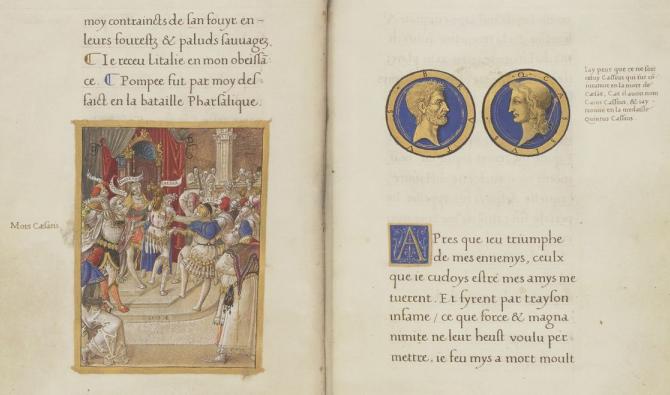 moy contraincts de san fouyr en-
leurs fourestz & paluds sauuagez.
Ie receu Litalie en mon obeissã
ce. Pompee fut par moy des
faict en la bataille Pharsalique.
Mors Cæsaris.
BRV
TVS
Q CAS
SIVS
Iay peur que ce ne soit
celuy Cassius qui fut co
iurateur en la mort de
Cæsar, Car il auoit nom
Caius Cassius, & iay
trouue en la medaille
Quintus Cassius.
APres que ieu triumphe
de mes ennemys, ceulx
que ie cudoys estre mes amys me
tuerent. Et fyrent par trayson
infame / ce que force & magna
nimite ne leur heust voulu per
mettre. ie feu mys a mort moult